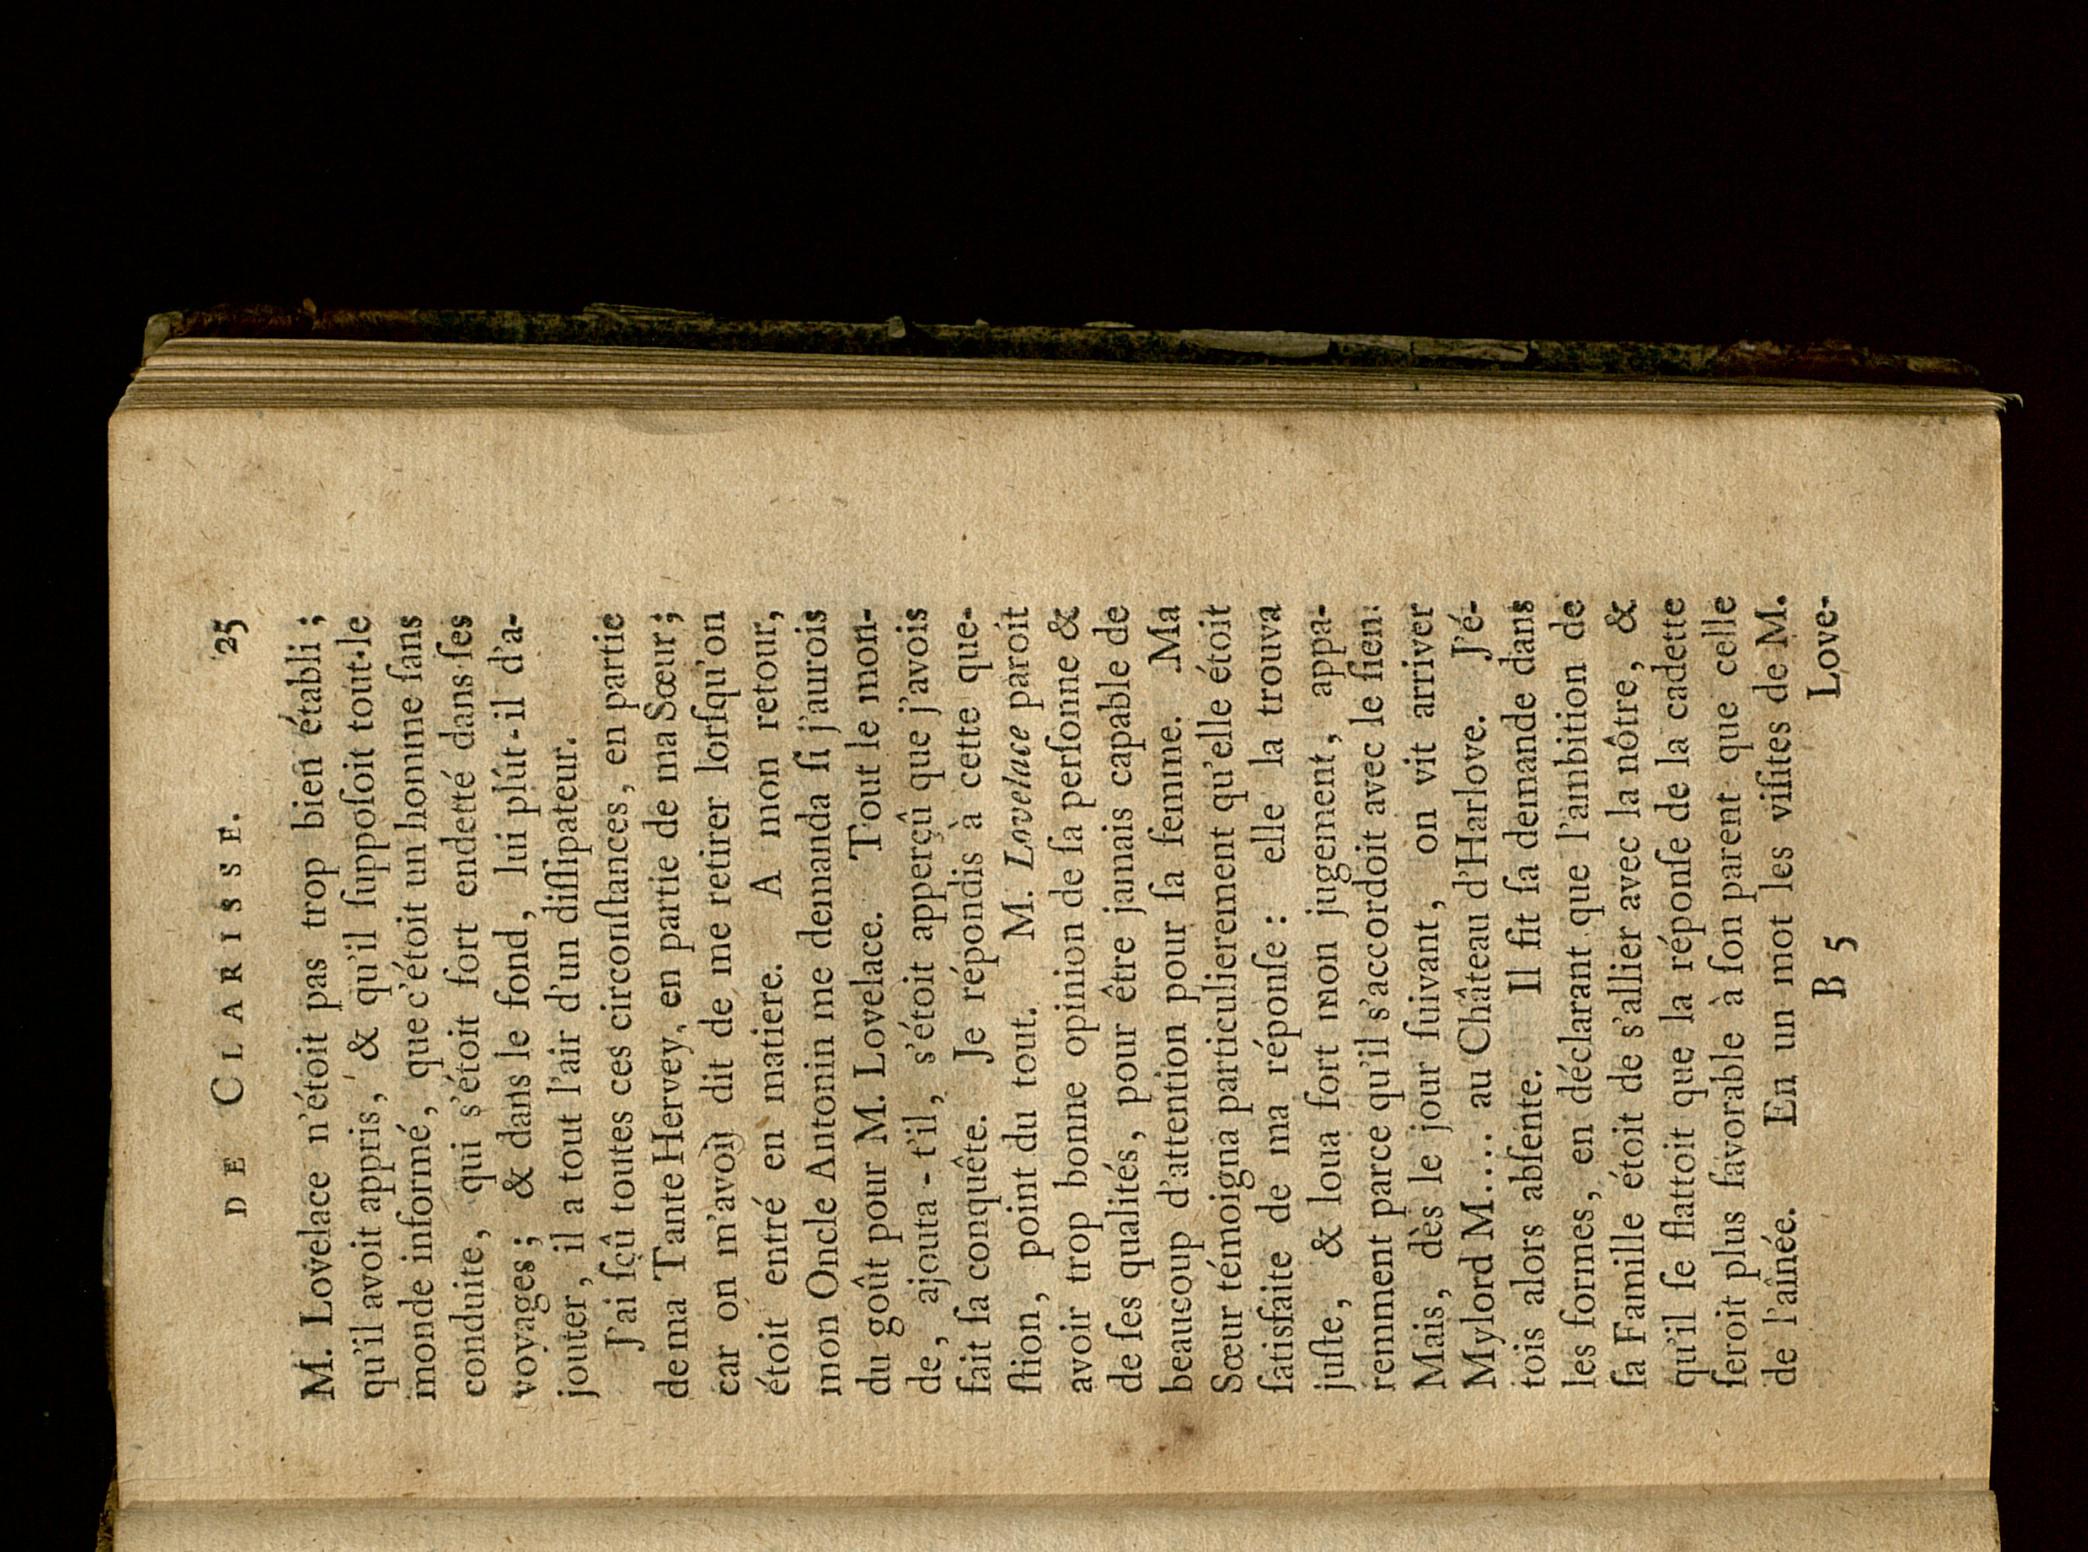 DE CLARISSE. 25
M. Lovelace n'étoit pas trop bien établi ;
qu'il avoit appris, & qu'il ſuppoſoit tout-le
monde informé, que c'étoit un homme ſans
conduite, qui s'étoit fort endetté dans ſes
voyages ; & dans le fond, lui plût-il d'a-
jouter, il a tout l'air d'un diſſipateur.
J'ai ſçû toutes ces circonſtances, en partie
de ma Tante Hervey, en partie de ma Sœur ;
car on m'avoit dit de me retirer lorſqu'on
étoit entré en matiere. A mon retour,
mon Oncle Antonin me demanda ſi j'aurois
du goût pour M. Lovelace. Tout le mon-
de, ajouta-t'il, s'étoit apperçû que j'avois
fait ſa conquête. Je répondis à cette que-
ſtion, point du tout. M. Lovelace paroit
avoir trop bonne opinion de ſa perſonne &
de ſes qualités, pour être jamais capable de
beaucoup d'attention pour ſa femme. Ma
Sœur témoigna particulierement qu'elle étoit
ſatisfaite de ma réponſe : elle la trouva
juſte, & loua fort mon jugement, appa-
remment parce qu'il s'accordoit avec le ſien.
Mais, dès le jour ſuivant, on vit arriver
Mylord M.... au Château d'Harlove. J'é-
tois alors abſente. Il fit ſa demande dans
les formes, en déclarant que l'ambition de
ſa Famille étoit de s'allier avec la nôtre, &
qu'il ſe flattoit que la réponſe de la cadette
ſeroit plus favorable à ſon parent que celle
de l'aînée. En un mot les viſites de M.
B 5 Love-